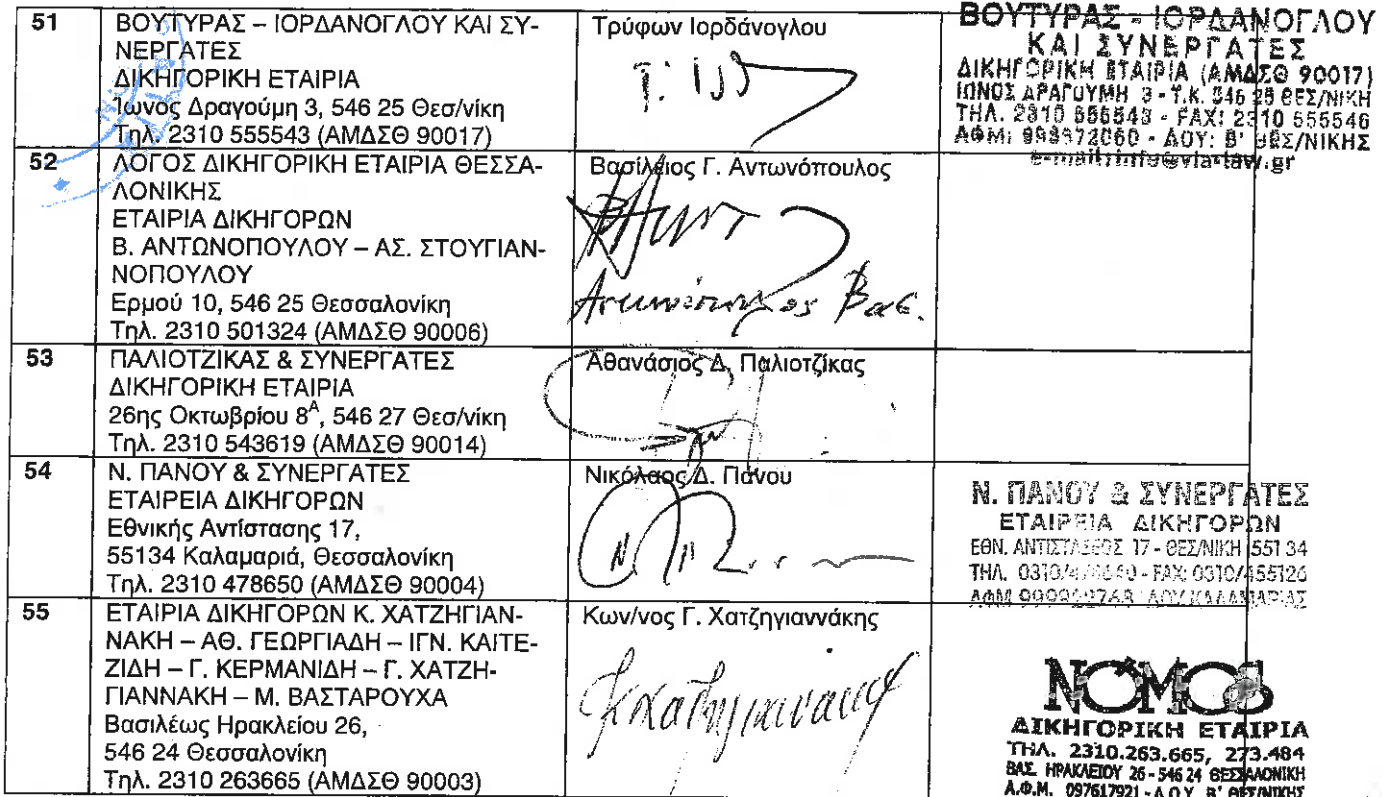 51
ΒΟΥΤΥΡΑΣ – ΙΟΡΔΑΝΟΓΛΟΥ ΚΑΙ ΣΥ-
ΝΕΡΓΑΤΕΣ
ΔΙΚΗΓΟΡΙΚΗ ΕΤΑΙΡΙΑ
Ίωνος Δραγούμη 3, 546 25 Θεσ/νίκη
Τηλ. 2310 555543 (ΑΜΔΣΘ 90017)
Τρύφων Ιορδάνογλου
ΒΟΥΤΥΡΑΣ - ΙΟΡΔΑΝΟΓΛΟΥ
ΚΑΙ ΣΥΝΕΡΓΑΤΕΣ
ΔΙΚΗΓΟΡΙΚΗ ΕΤΑΙΡΙΑ (ΑΜΔΣΘ 90017)
ΙΩΝΟΣ ΔΡΑΓΟΥΜΗ 3 - Τ.Κ. 546 25 ΘΕΣ/ΝΙΚΗ
ΤΗΛ. 2310 555543 - FAX: 2310 555546
ΑΦΜ: 998972060 - ΔΟΥ: Β' ΘΕΣ/ΝΙΚΗΣ
e-mail: info@via-law.gr
52
ΛΟΓΟΣ ΔΙΚΗΓΟΡΙΚΗ ΕΤΑΙΡΙΑ ΘΕΣΣΑ-
ΛΟΝΙΚΗΣ
ΕΤΑΙΡΙΑ ΔΙΚΗΓΟΡΩΝ
Β. ΑΝΤΩΝΟΠΟΥΛΟΥ – ΑΣ. ΣΤΟΥΓΙΑΝ-
ΝΟΠΟΥΛΟΥ
Ερμού 10, 546 25 Θεσσαλονίκη
Τηλ. 2310 501324 (ΑΜΔΣΘ 90006)
Βασίλειος Γ. Αντωνόπουλος
Αντωνόπουλος Βασ.
53
ΠΑΛΙΟΤΖΙΚΑΣ & ΣΥΝΕΡΓΑΤΕΣ
ΔΙΚΗΓΟΡΙΚΗ ΕΤΑΙΡΙΑ
26ης Οκτωβρίου 8Α, 546 27 Θεσ/νίκη
Τηλ. 2310 543619 (ΑΜΔΣΘ 90014)
Αθανάσιος Δ. Παλιοτζίκας
54
Ν. ΠΑΝΟΥ & ΣΥΝΕΡΓΑΤΕΣ
ΕΤΑΙΡΕΙΑ ΔΙΚΗΓΟΡΩΝ
Εθνικής Αντίστασης 17,
55134 Καλαμαριά, Θεσσαλονίκη
Τηλ. 2310 478650 (ΑΜΔΣΘ 90004)
Νικόλαος Δ. Πάνου
Ν. ΠΑΝΟΥ & ΣΥΝΕΡΓΑΤΕΣ
ΕΤΑΙΡΕΙΑ ΔΙΚΗΓΟΡΩΝ
ΕΘΝ. ΑΝΤΙΣΤΑΣΕΩΣ 17 - ΘΕΣ/ΝΙΚΗ 551 34
ΤΗΛ. FAX: 0310/455126
ΑΦΜ ΔΟΥ ΚΑΛΑΜΑΡΙΑΣ
55
ΕΤΑΙΡΙΑ ΔΙΚΗΓΟΡΩΝ Κ. ΧΑΤΖΗΓΙΑΝ-
ΝΑΚΗ – ΑΘ. ΓΕΩΡΓΙΑΔΗ – ΙΓΝ. ΚΑΙΤΕ-
ΖΙΔΗ – Γ. ΚΕΡΜΑΝΙΔΗ – Γ. ΧΑΤΖΗ-
ΓΙΑΝΝΑΚΗ – Μ. ΒΑΣΤΑΡΟΥΧΑ
Βασιλέως Ηρακλείου 26,
546 24 Θεσσαλονίκη
Τηλ. 2310 263665 (ΑΜΔΣΘ 90003)
Κων/νος Γ. Χατζηγιαννάκης
ΝΟΜΟΣ
ΔΙΚΗΓΟΡΙΚΗ ΕΤΑΙΡΙΑ
ΤΗΛ. 2310.263.665, 273.484
ΒΑΣ. ΗΡΑΚΛΕΙΟΥ 26 - 546 24 ΘΕΣΣΑΛΟΝΙΚΗ
Α.Φ.Μ. 097617921 - Δ.Ο.Υ. Β' ΘΕΣ/ΝΙΚΗΣ